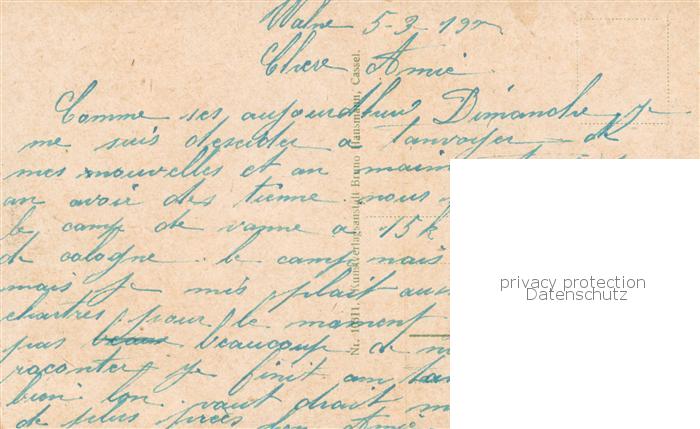 Wahn 5-3-19
Chère Amie
Comme ses aujourdhui Dimanche je
me suis descider a tanvoyer de
mes nouvelles et an maim
an avoir des tienne nous
le camp de vanne a 15 k
de cologne. le camp nais
mais je mis plait aus
chartres pour le moment
pas beaucoup de n
raconter je finit am tan
bien lon vaut drait m
de plus près ton Amie
Nr. 1611. Kunstverlagsanstalt Bruno Hansmann, Cassel.
privacy protection
Datenschutz